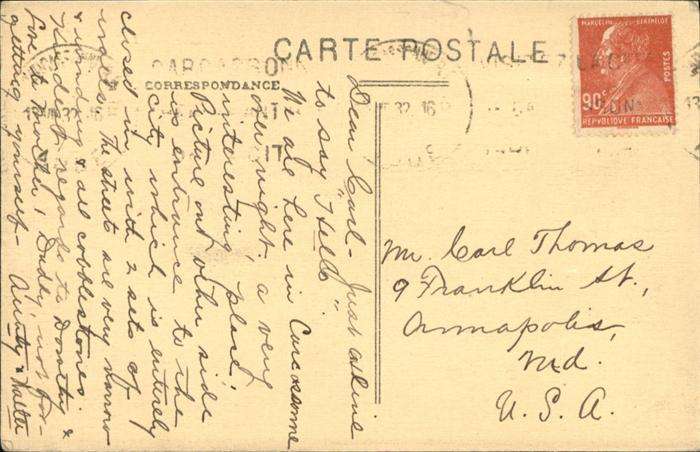 CARTE POSTALE
CORRESPONDANCE
CARCASSON
MARCELIN BERTHELOT
POSTES
90c
REPUBLIQUE FRANÇAISE
Dear Carl - Just a line
to say "Hello".
We are here in Carcassonne
over night. a very
interesting place.
Picture on other side
is entrance to the
city which is entirely
closed in with 2 sets of
walls. The streets are very narrow
& winding & all cobblestones.
Kindest regards to Dorothy &
Love to Mother & Dudley, not for-
getting yourself - Aunty & Walter
Mr. Carl Thomas
9 Franklin St,
Annapolis,
Md.
U.S.A.